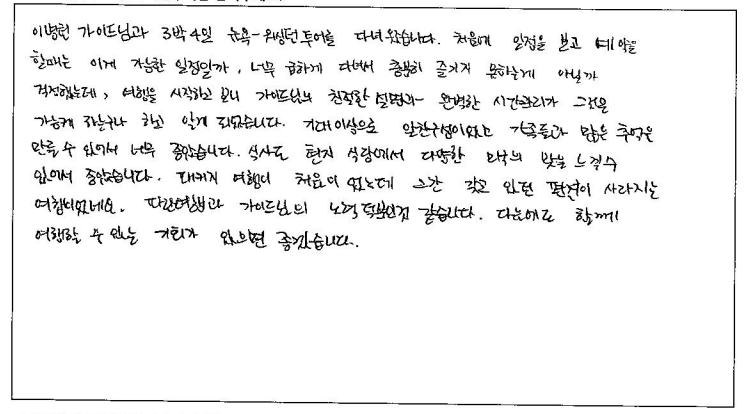 이병헌 가이드님과 3박4일 뉴욕-워싱턴 투어를 다녀 왔습니다. 처음에 일정을 보고 예약을
할때는 이게 가능한 일정일까, 너무 급하게 다녀서 충분히 즐기지 못하는게 아닐까
걱정했는데, 여행을 시작하고 보니 가이드님의 친절한 설명과 완벽한 시간관리가 그것을
가능케 하는구나 하고 알게 되었습니다. 기대이상으로 알찬구성이었고 가족들과 많은 추억을
만들 수 있어서 너무 좋았습니다. 식사도 현지 식당에서 다양한 미국의 맛을 느낄수
있어서 좋았습니다. 패키지 여행이 처음이었는데 그간 갖고 있던 편견이 사라지는
여행이었네요. 따라여행과 가이드님의 노력 덕분인것 같습니다. 다음에도 함께
여행할 수 있는 기회가 있으면 좋겠습니다.